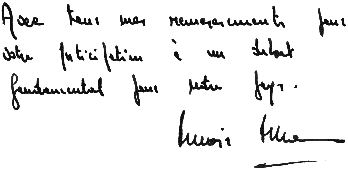 Avec tous mes remerciements pour
votre participation à un débat
fondamental pour notre pays.